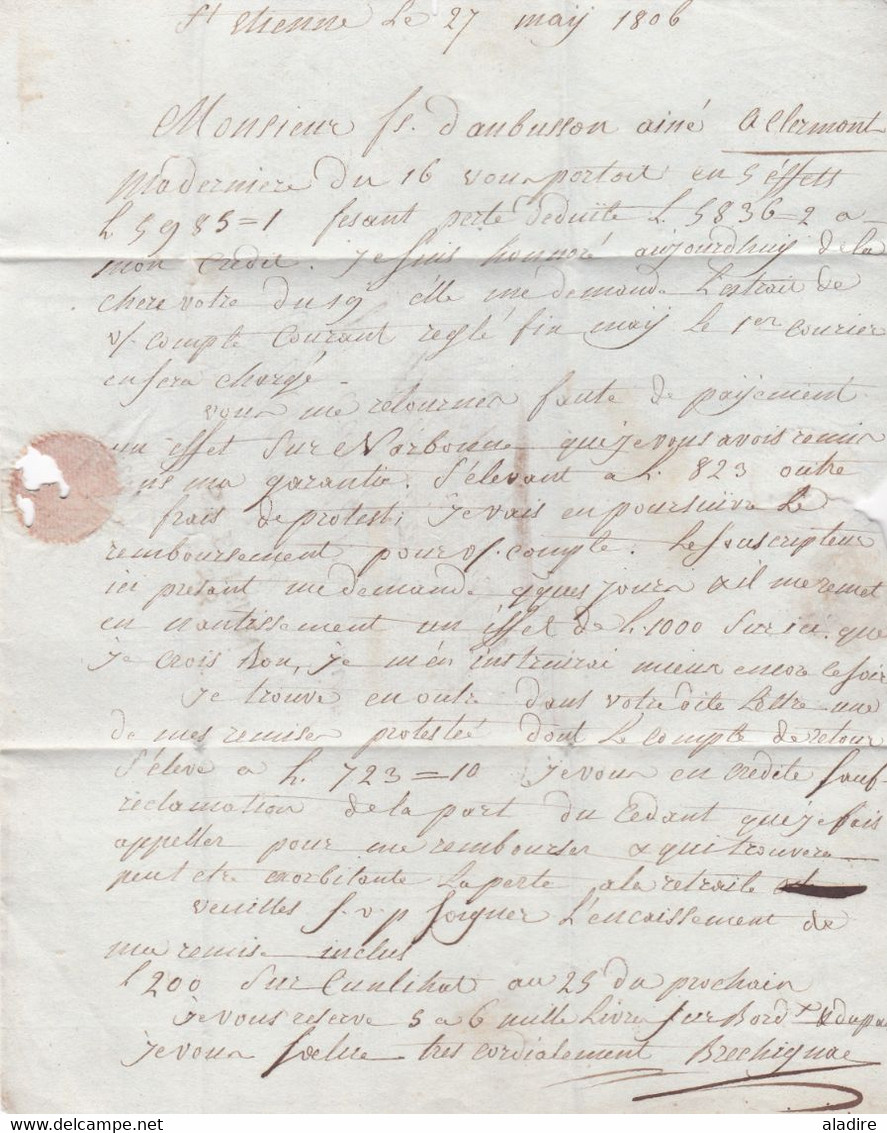 St etienne le 27 maÿ 1806
Monsieur fs. daubusson ainé a Clermont
Maderniere du 16 vous portoit en 5 éffets
L 5985=1 fesant perte deduite L. 5836=2 a
mon Credit. Je suis honnoré aujourdhuÿ de la
chere votre du 19 élle me demande L'extrait de
v/. compte Courant reglé fin maÿ le 1er courier
ensera chargé.
vous me retournés faute de paÿement
un effet sur Narbonne que je vous avois remis
ma garantie. S'élevant a L. 823 outre
frais de protest, Je vais en poursuivre Le
remboursement pour v/. compte. Le souscripteur
ici present me demande qques jours & il me remet
en nantissement un éffet de L. 1000 Sur ici que
Je crois bon, Je m'en instruirai mieux encore le soir
Je trouve en outre dans votre dite Lettre une
de mes remises protestée dont Le compte de retour
S'éleve a L. 723=10 Je vous en credite sauf
reclamation de la part du Cedant que je fais
appeller pour me rembourser & qui trouvera
peut etre exorbitante La perte a la retraite
veuilles s.v.p soigner L'encaissement de
ma remise inclus
L 200 Sur Cunlihat au 25 du prochain
Je vous reserve 5 a 6 mille Livres sur Bordx
Je vous salue tres cordialement Brechignac
aladire
delcampe.net